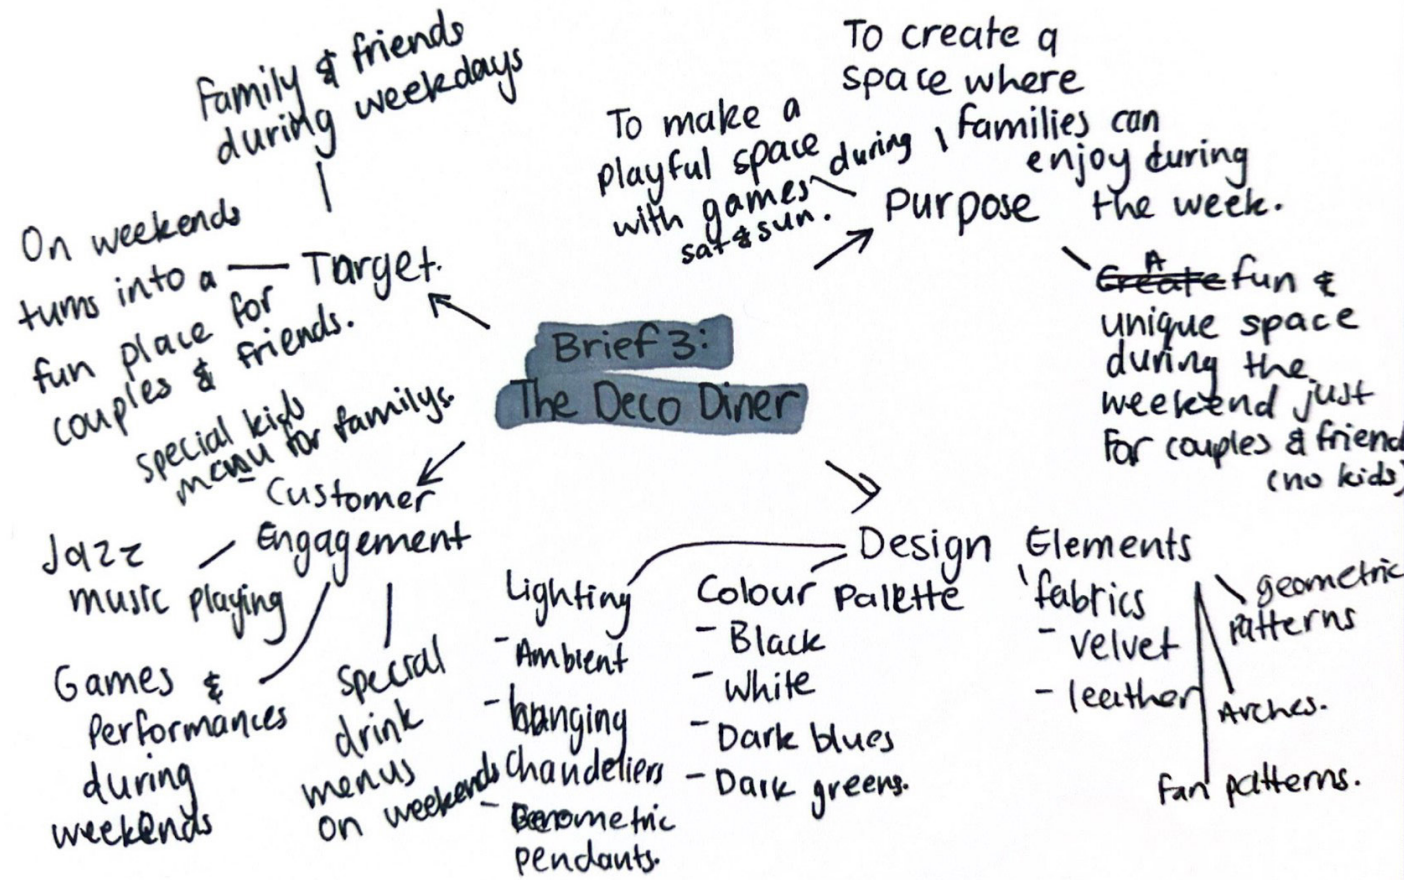 Brief 3:
The Deco Diner
Target.
family & friends
during weekdays
On weekends
turns into a
fun place for
couples & friends.
Purpose
To make a
playful space
with games during
sat & sun.
To create a
space where
families can
enjoy during
the week.
A fun &
unique space
during the
weekend just
for couples & friend
(no kids)
Customer
Engagement
special kids
menu for familys.
Jazz
music playing
Games &
performances
during
weekends
special
drink
menus
on weekends
Design Elements
Lighting
- Ambient
- hanging
chandeliers
- Geometric
pendants.
Colour Palette
- Black
- White
- Dark blues
- Dark greens.
fabrics
- velvet
- leather
geometric
patterns
Arches.
fan patterns.